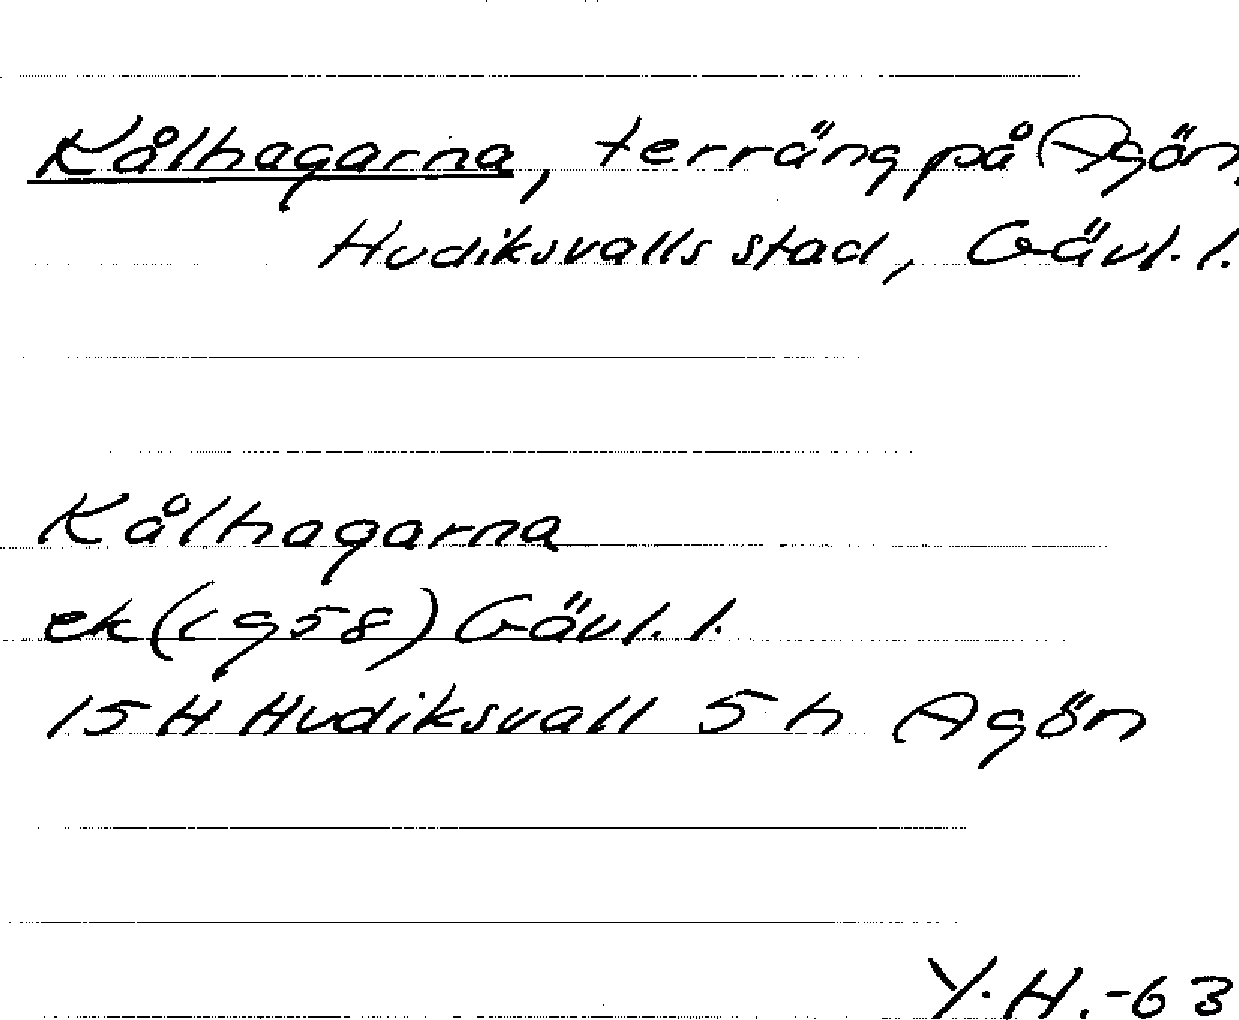 Kålhagarna, terräng på Agön,
Hudiksvalls stad, Gävl. l.
Kålhagarna
ek (1958) Gävl. l.
15 H Hudiksvall 5 h Agön
Y. H. -63